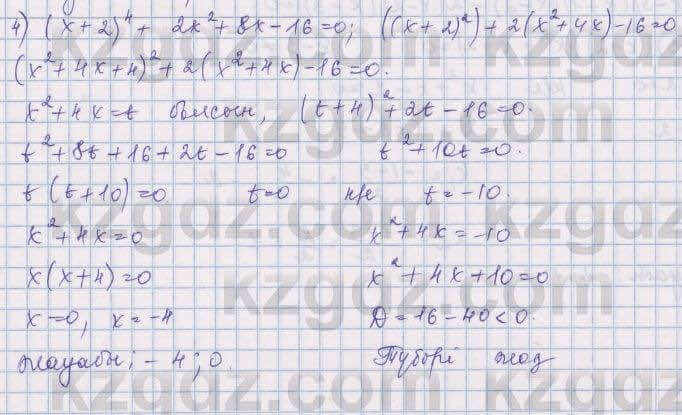 4) (x+2)⁴ + 2x²+8x-16=0; ((x+2)²)+2(x²+4x)-16=0
(x²+4x+4)²+2(x²+4x)-16=0.
x²+4x=t болсын, (t+4)²+2t-16=0.
t²+8t+16+2t-16=0 t²+10t=0.
t(t+10)=0 t=0 н/е t=-10.
x²+4x=0 x²+4x=-10
x(x+4)=0 x²+4x+10=0
x=0, x=-4 D=16-40<0.
жауабы: -4; 0. Түбірі жоқ
kzgdz.com